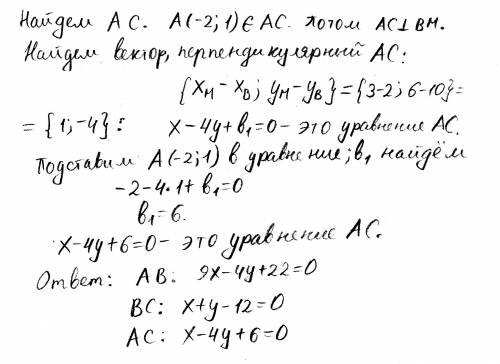 Найдем AC. A(-2;1)∈AC. потом AC⊥BM.
Найдем вектор, перпендикулярный AC:
{xM - xB; yM - yB} = {3-2; 6-10} =
= {1; -4} : x-4y+b1=0 - это уравнение AC.
Подставим A(-2;1) в уравнение; b1 найдём
-2-4·1+b1=0
b1=6.
x-4y+6=0 - это уравнение AC.
Ответ: AB: 9x-4y+22=0
BC: x+y-12=0
AC: x-4y+6=0